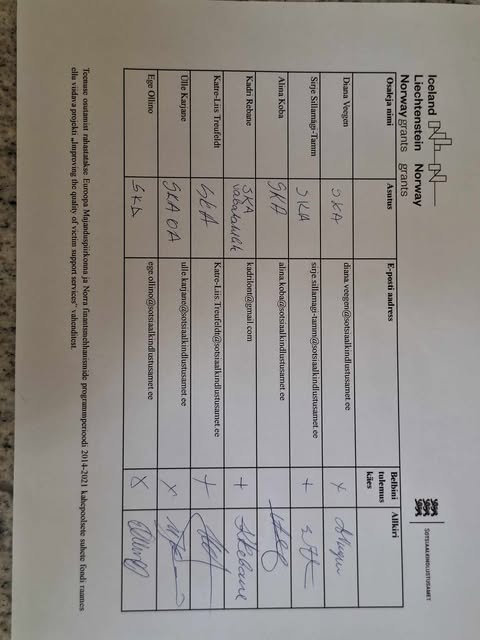 Iceland
Liechtenstein Norway
Norway grants grants
SOTSIAALKINDLUSTUSAMET
Osaleja nimi Asutus E-posti aadress Belbini tulemus käes Allkiri
Diana Veegen SKA diana.veegen@sotsiaalkindlustusamet.ee +
Sirje Sillamägi-Tamm SKA sirje.sillamagi-tamm@sotsiaalkindlustusamet.ee +
Alina Koba SKA alina.koba@sotsiaalkindlustusamet.ee
Kadri Rebane SKA vabatahtlik kadrilont@gmail.com + KRebane
Katre-Liis Treufeldt SKA Katre-Liis.Treufeldt@sotsiaalkindlustusamet.ee +
Ülle Karjane SKA OA ulle.karjane@sotsiaalkindlustusamet.ee x
Ege Ollino SKA ege.ollino@sotsiaalkindlustusamet.ee x
Teenuse osutamist rahastatakse Euroopa Majanduspiirkonna ja Norra finantsmehhanismide programmperioodi 2014-2021 kahepoolsete suhete fondi raames
ellu viidava projekti „Improving the quality of victim support services" vahenditest.